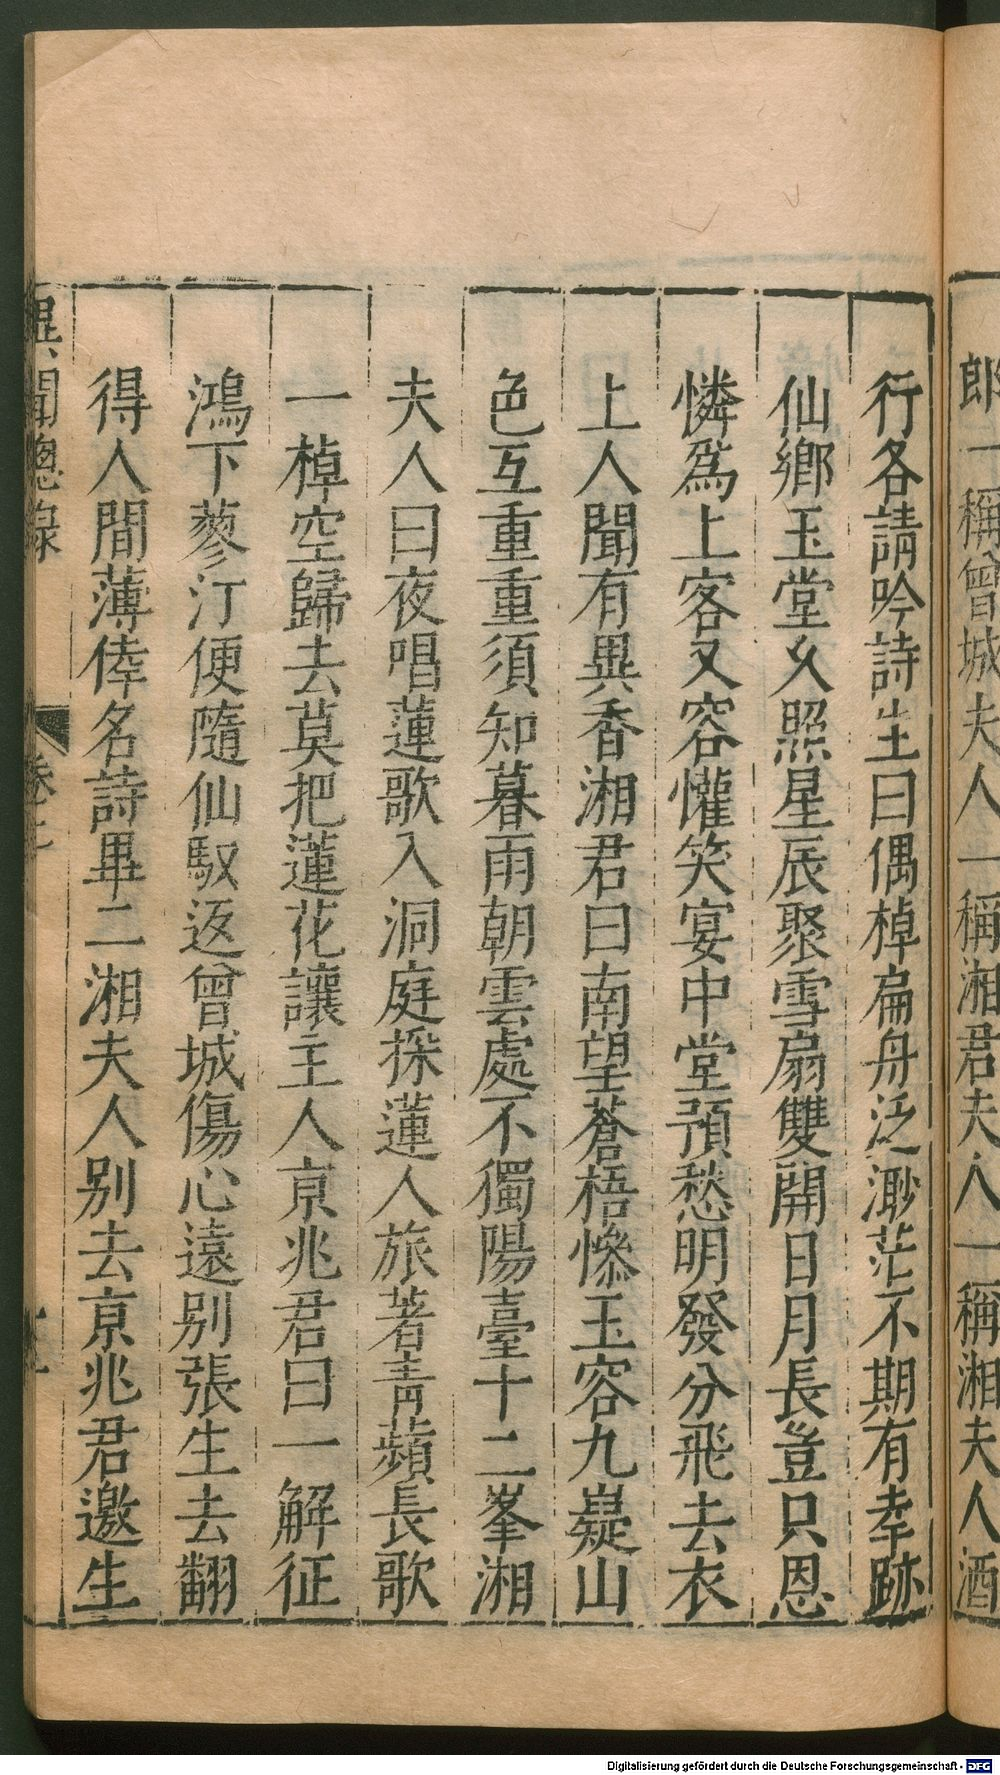 郎一稱曾城夫人一稱湘君夫人一稱湘夫人酒
行各請吟詩生曰偶棹扁舟泛渺茫不期有幸跡
仙鄉玉堂久照星辰聚雪扇雙開日月長豈只恩
憐爲上客又容懽笑宴中堂預愁明發分飛去衣
上人聞有異香湘君曰南望蒼梧慘玉容九嶷山
色互重重須知暮雨朝雲處不獨陽臺十二峯湘
夫人曰夜唱蓮歌入洞庭採蓮人旅著青蘋長歌
一棹空歸去莫把蓮花讓主人京兆君曰一解征
鴻下蓼汀便隨仙馭返曾城傷心遠别張生去翻
得人間薄倖名詩畢二湘夫人别去京兆君邀生
異聞總錄
卷之
Digitalisierung gefördert durch die Deutsche Forschungsgemeinschaft - DFG